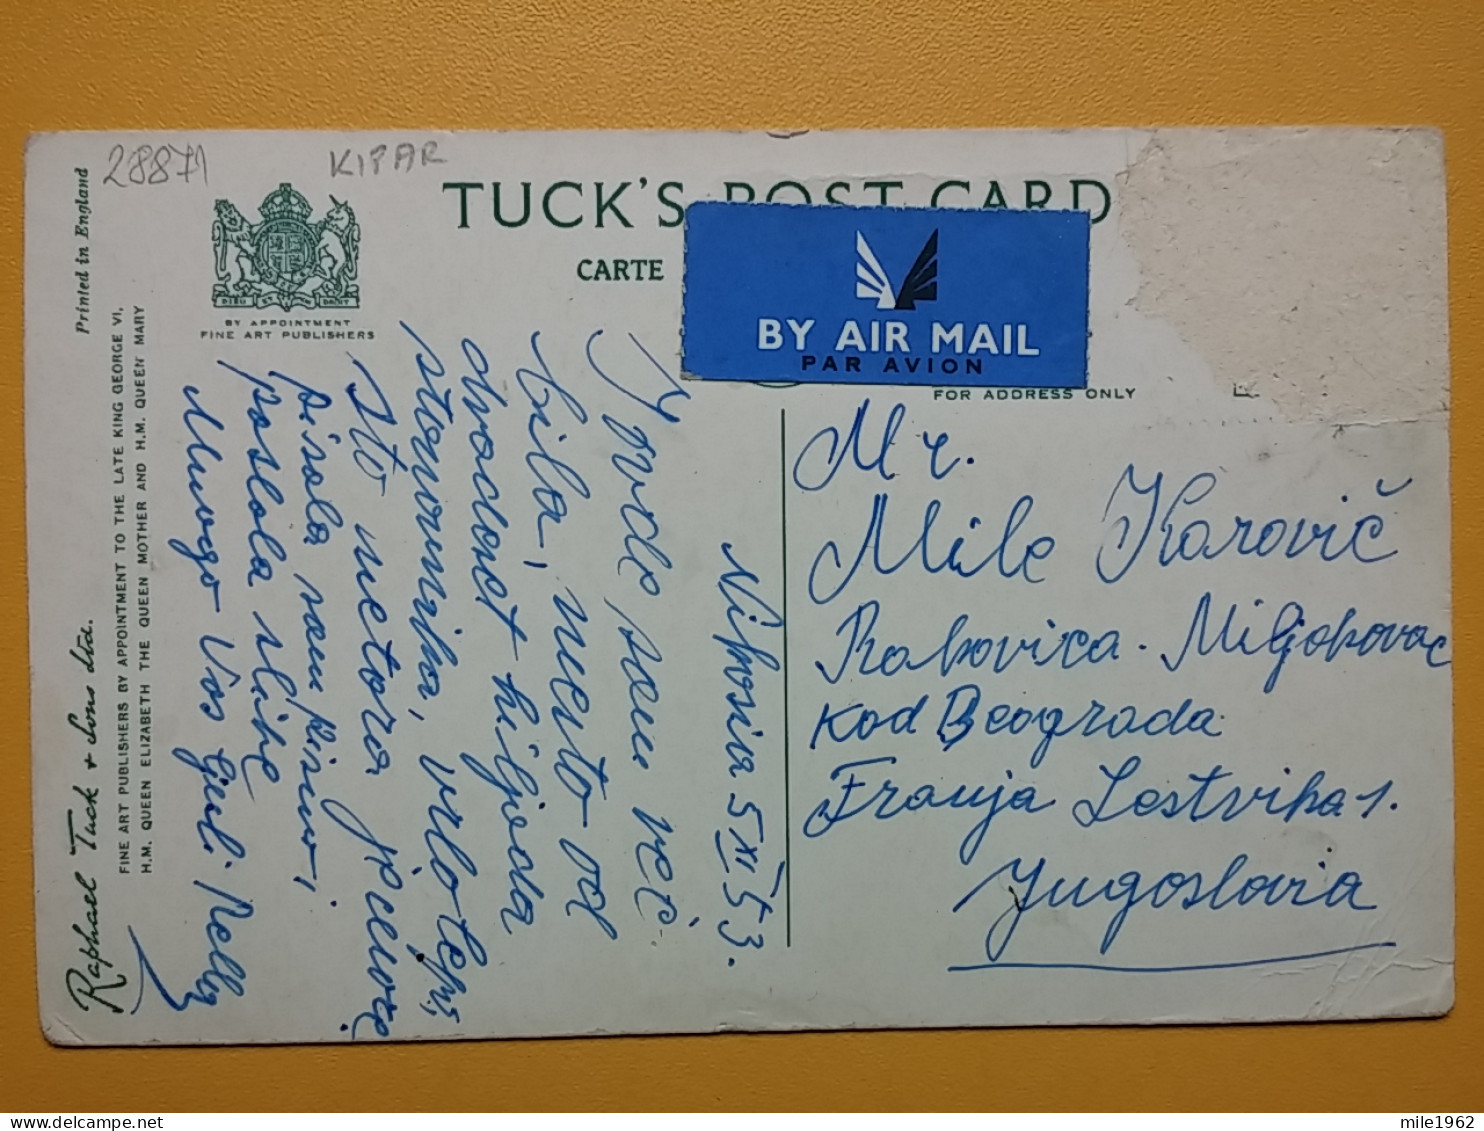 28871
KIPAR
TUCK'S POST CARD
CARTE
BY AIR MAIL
PAR AVION
FOR ADDRESS ONLY
DIEU ET MON DROIT
BY APPOINTMENT
FINE ART PUBLISHERS
Printed in England
Raphael Tuck & Sons Ltd.
FINE ART PUBLISHERS BY APPOINTMENT TO THE LATE KING GEORGE VI,
H.M. QUEEN ELIZABETH THE QUEEN MOTHER AND H.M. QUEEN MARY
Nikosia 5 XI 53.
I ovde sam već
bila, mesto od
dvadeset hiljada
stanovnika, vrlo lepo,
Što netora
pisala sam pismo i
poslala slike
Mnogo Vas ljubi Nelly
Mr.
Mile Karovič
Rakovica. Miljakovac
kod Beograda
Franja Lestvika 1.
Yugoslavia
mile1962